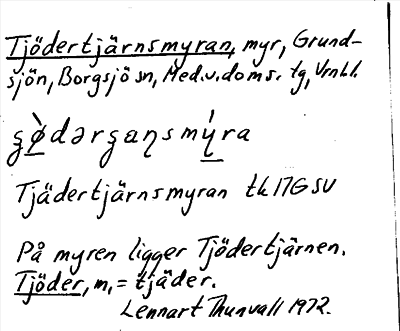 Tjödertjärnsmyran, myr, Grund-
sjön, Borgsjö sn, Med.v.doms. tg, Vrnl.l.
ʂø̀dərʂaɳsmýra
Tjädertjärnsmyran tk 17G SV
På myren ligger Tjödertjärnen.
Tjöder, m, = tjäder.
Lennart Thunvall 1972.